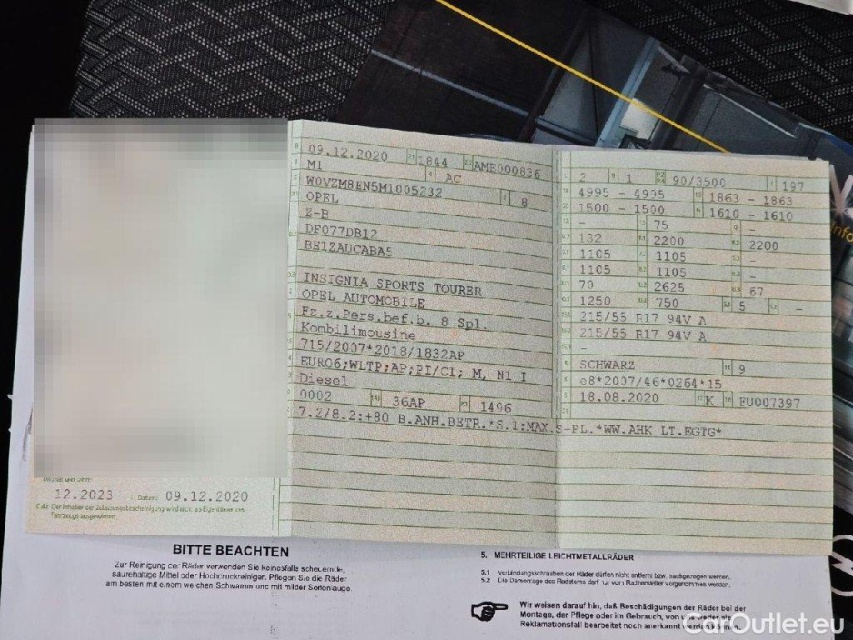 09.12.2020 1844 AME000836
M1 AC
W0VZM8EN5M1005232 8
OPEL
Z-B
DF077DB12
BE1ZAUCABA5
INSIGNIA SPORTS TOURER
OPEL AUTOMOBILE
Fz.z.Pers.bef.b. 8 Spl.
Kombilimousine
715/2007*2018/1832AP
EURO6;WLTP;AP;PI/CI; M, N1 I
Diesel
0002 36AP 1496
7.2/8.2:+80 B.ANH.BETR.*S.1:MAX.5-PL.*WW.AHK LT.EGTG*
2 1 90/3500 197
4995 - 4995 1863 - 1863
1500 - 1500 1610 - 1610
- 75 -
132 2200 2200
1105 1105 -
1105 1105 -
70 2625 67
1250 750 5 -
215/55 R17 94V A
215/55 R17 94V A
SCHWARZ 9
e8*2007/46*0264*15
18.08.2020 K FU007397
12.2023 Datum: 09.12.2020
Der Inhaber der Zulassungsbescheinigung wird nicht als Eigentümer des
Fahrzeugs ausgewiesen.
BITTE BEACHTEN
Zur Reinigung der Räder verwenden Sie keinesfalls scheuernde,
säurehaltige Mittel oder Hochdruckreiniger. Pflegen Sie die Räder
am besten mit einem weichen Schwamm und mit milder Seifenlauge.
5. MEHRTEILIGE LEICHTMETALLRÄDER
5.1 Verbindungsschrauben der Räder dürfen nicht entfernt bzw. nachgezogen werden.
5.2 Die Demontage des Radsterns darf nur vom Radhersteller vorgenommen werden.
Wir weisen darauf hin, daß Beschädigungen der Räder bei der
Montage, der Pflege oder im Gebrauch, von uns weder im
Reklamationsfall bearbeitet noch anerkannt werden können.
CarOutlet.eu